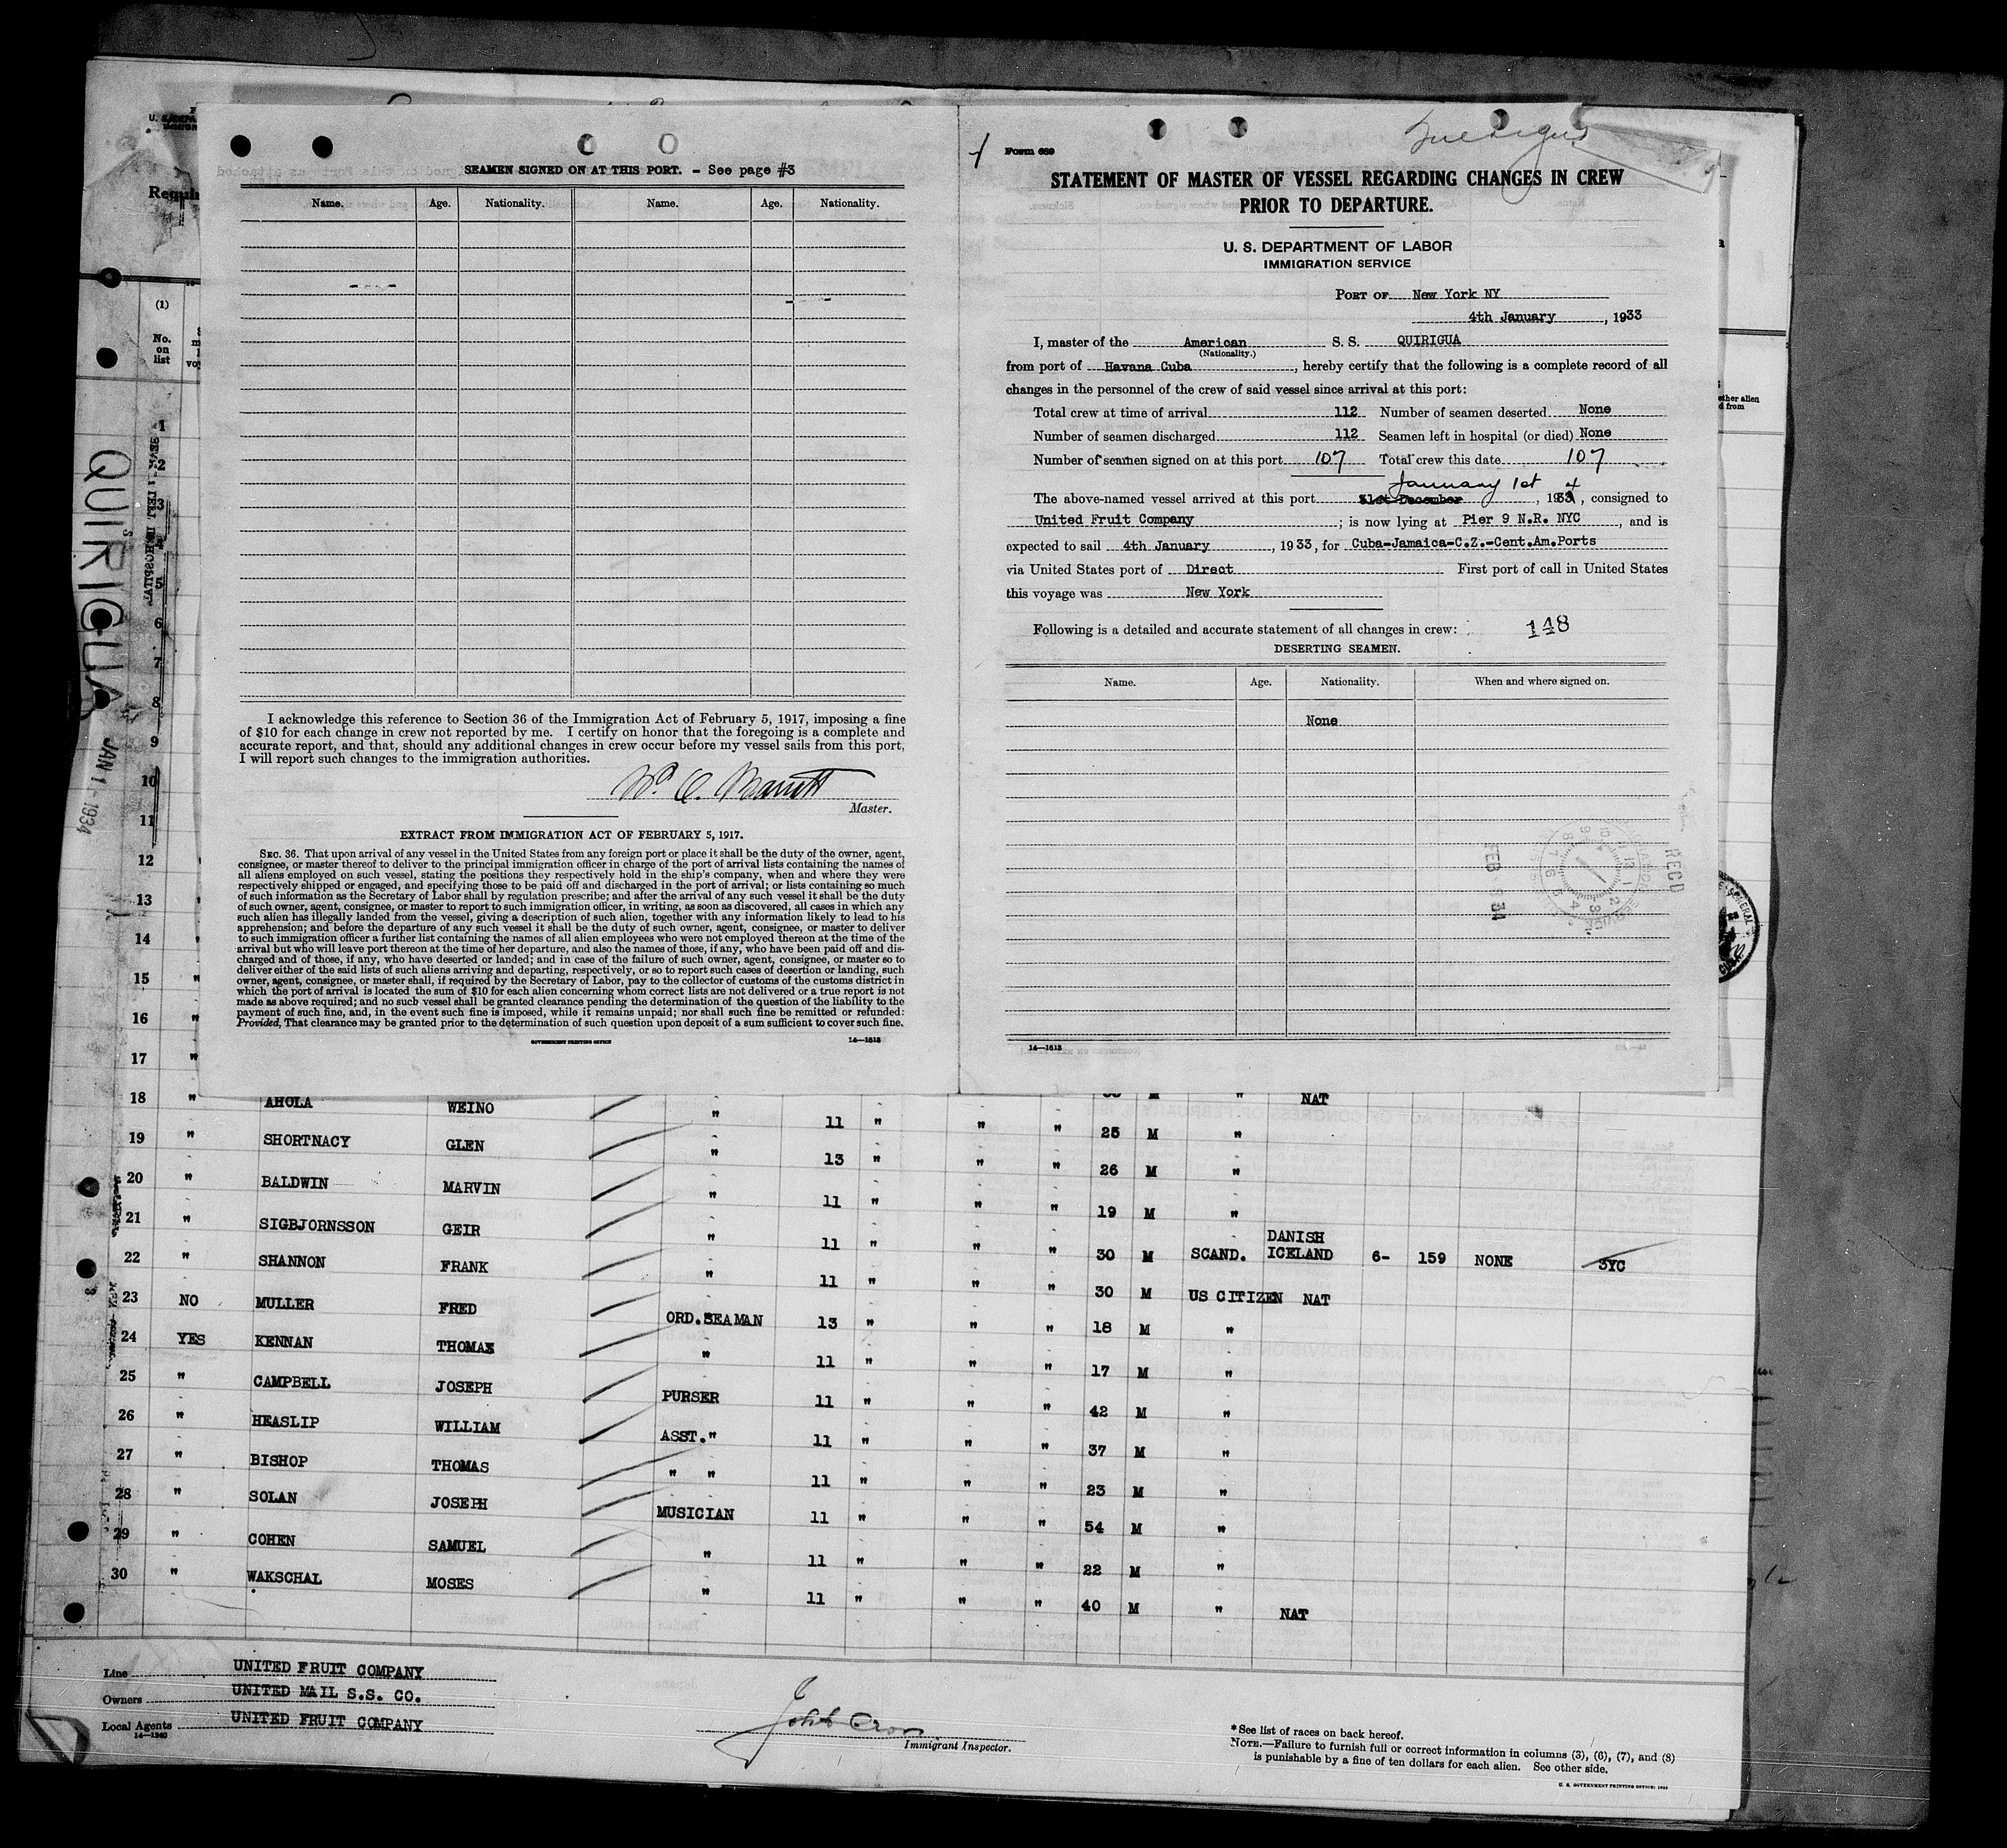 SEAMEN SIGNED ON AT THIS PORT. - See page #3
Name. Age. Nationality. Name. Age. Nationality.
I acknowledge this reference to Section 36 of the Immigration Act of February 5, 1917, imposing a fine
of $10 for each change in crew not reported by me. I certify on honor that the foregoing is a complete and
accurate report, and that, should any additional changes in crew occur before my vessel sails from this port,
I will report such changes to the immigration authorities.
Master.
EXTRACT FROM IMMIGRATION ACT OF FEBRUARY 5, 1917.
SEC. 36. That upon arrival of any vessel in the United States from any foreign port or place it shall be the duty of the owner, agent,
consignee, or master thereof to deliver to the principal immigration officer in charge of the port of arrival lists containing the names of
all aliens employed on such vessel, stating the positions they respectively hold in the ship's company, when and where they were
respectively shipped or engaged, and specifying those to be paid off and discharged in the port of arrival; or lists containing so much
of such information as the Secretary of Labor shall by regulation prescribe; and after the arrival of any such vessel it shall be the duty
of such owner, agent, consignee, or master to report to such immigration officer, in writing, as soon as discovered, all cases in which any
such alien has illegally landed from the vessel, giving a description of such alien, together with any information likely to lead to his
apprehension; and before the departure of any such vessel it shall be the duty of such owner, agent, consignee, or master to deliver
to such immigration officer a further list containing the names of all alien employees who were not employed thereon at the time of the
arrival but who will leave port thereon at the time of her departure, and also the names of those, if any, who have been paid off and dis-
charged and of those, if any, who have deserted or landed; and in case of the failure of such owner, agent, consignee, or master so to
deliver either of the said lists of such aliens arriving and departing, respectively, or so to report such cases of desertion or landing, such
owner, agent, consignee, or master shall, if required by the Secretary of Labor, pay to the collector of customs of the customs district in
which the port of arrival is located the sum of $10 for each alien concerning whom correct lists are not delivered or a true report is not
made as above required; and no such vessel shall be granted clearance pending the determination of the question of the liability to the
payment of such fine, and, in the event such fine is imposed, while it remains unpaid; nor shall such fine be remitted or refunded:
Provided, That clearance may be granted prior to the determination of such question upon deposit of a sum sufficient to cover such fine.
GOVERNMENT PRINTING OFFICE 14—1513
Form 689
STATEMENT OF MASTER OF VESSEL REGARDING CHANGES IN CREW
PRIOR TO DEPARTURE.
U. S. DEPARTMENT OF LABOR
IMMIGRATION SERVICE
PORT OF New York NY
4th January, 1933
I, master of the American S. S. QUIRIGUA
(Nationality.)
from port of Havana Cuba, hereby certify that the following is a complete record of all
changes in the personnel of the crew of said vessel since arrival at this port:
Total crew at time of arrival 112 Number of seamen deserted None
Number of seamen discharged 112 Seamen left in hospital (or died) None
Number of seamen signed on at this port 107 Total crew this date 107
January 1st 4
The above-named vessel arrived at this port 31st December, 193, consigned to
United Fruit Company; is now lying at Pier 9 N.R. NYC, and is
expected to sail 4th January, 1933, for Cuba-Jamaica-C.Z.-Cent.Am.Ports
via United States port of Direct First port of call in United States
this voyage was New York
Following is a detailed and accurate statement of all changes in crew: 148
DESERTING SEAMEN.
Name. Age. Nationality. When and where signed on.
None
RECD
FEB 34
14—1513
(1)
No.
on
list
QUIRIGUA
JAN 1 - 1934
1
2
3
4
5
6
7
8
9
10
11
12
13
14
15
16 "
17 "
18 " AHOLA WEINO " 11 " " " M " NAT
19 " SHORTNACY GLEN " 13 " " " 25 M "
20 " BALDWIN MARVIN " 11 " " " 26 M "
21 " SIGBJORNSSON GEIR " 11 " " " 19 M "
22 " SHANNON FRANK " 11 " " " 30 M SCAND. DANISH ICELAND 6- 159 NONE 3YC
23 NO MULLER FRED ORD.SEAMAN 13 " " " 30 M US CITIZEN NAT
24 YES KENNAN THOMAS " 11 " " " 18 M "
25 " CAMPBELL JOSEPH PURSER 11 " " " 17 M "
26 " HEASLIP WILLIAM ASST." 11 " " " 42 M "
27 " BISHOP THOMAS " " 11 " " " 37 M "
28 " SOLAN JOSEPH MUSICIAN 11 " " " 23 M "
29 " COHEN SAMUEL " 11 " " " 54 M "
30 " WAKSCHAL MOSES " 11 " " " 22 M "
40 M " NAT
Line UNITED FRUIT COMPANY
Owners UNITED MAIL S.S. CO.
Local Agents UNITED FRUIT COMPANY
14—1240
Immigrant Inspector.
*See list of races on back hereof.
NOTE.—Failure to furnish full or correct information in columns (3), (6), (7), and (8)
is punishable by a fine of ten dollars for each alien. See other side.